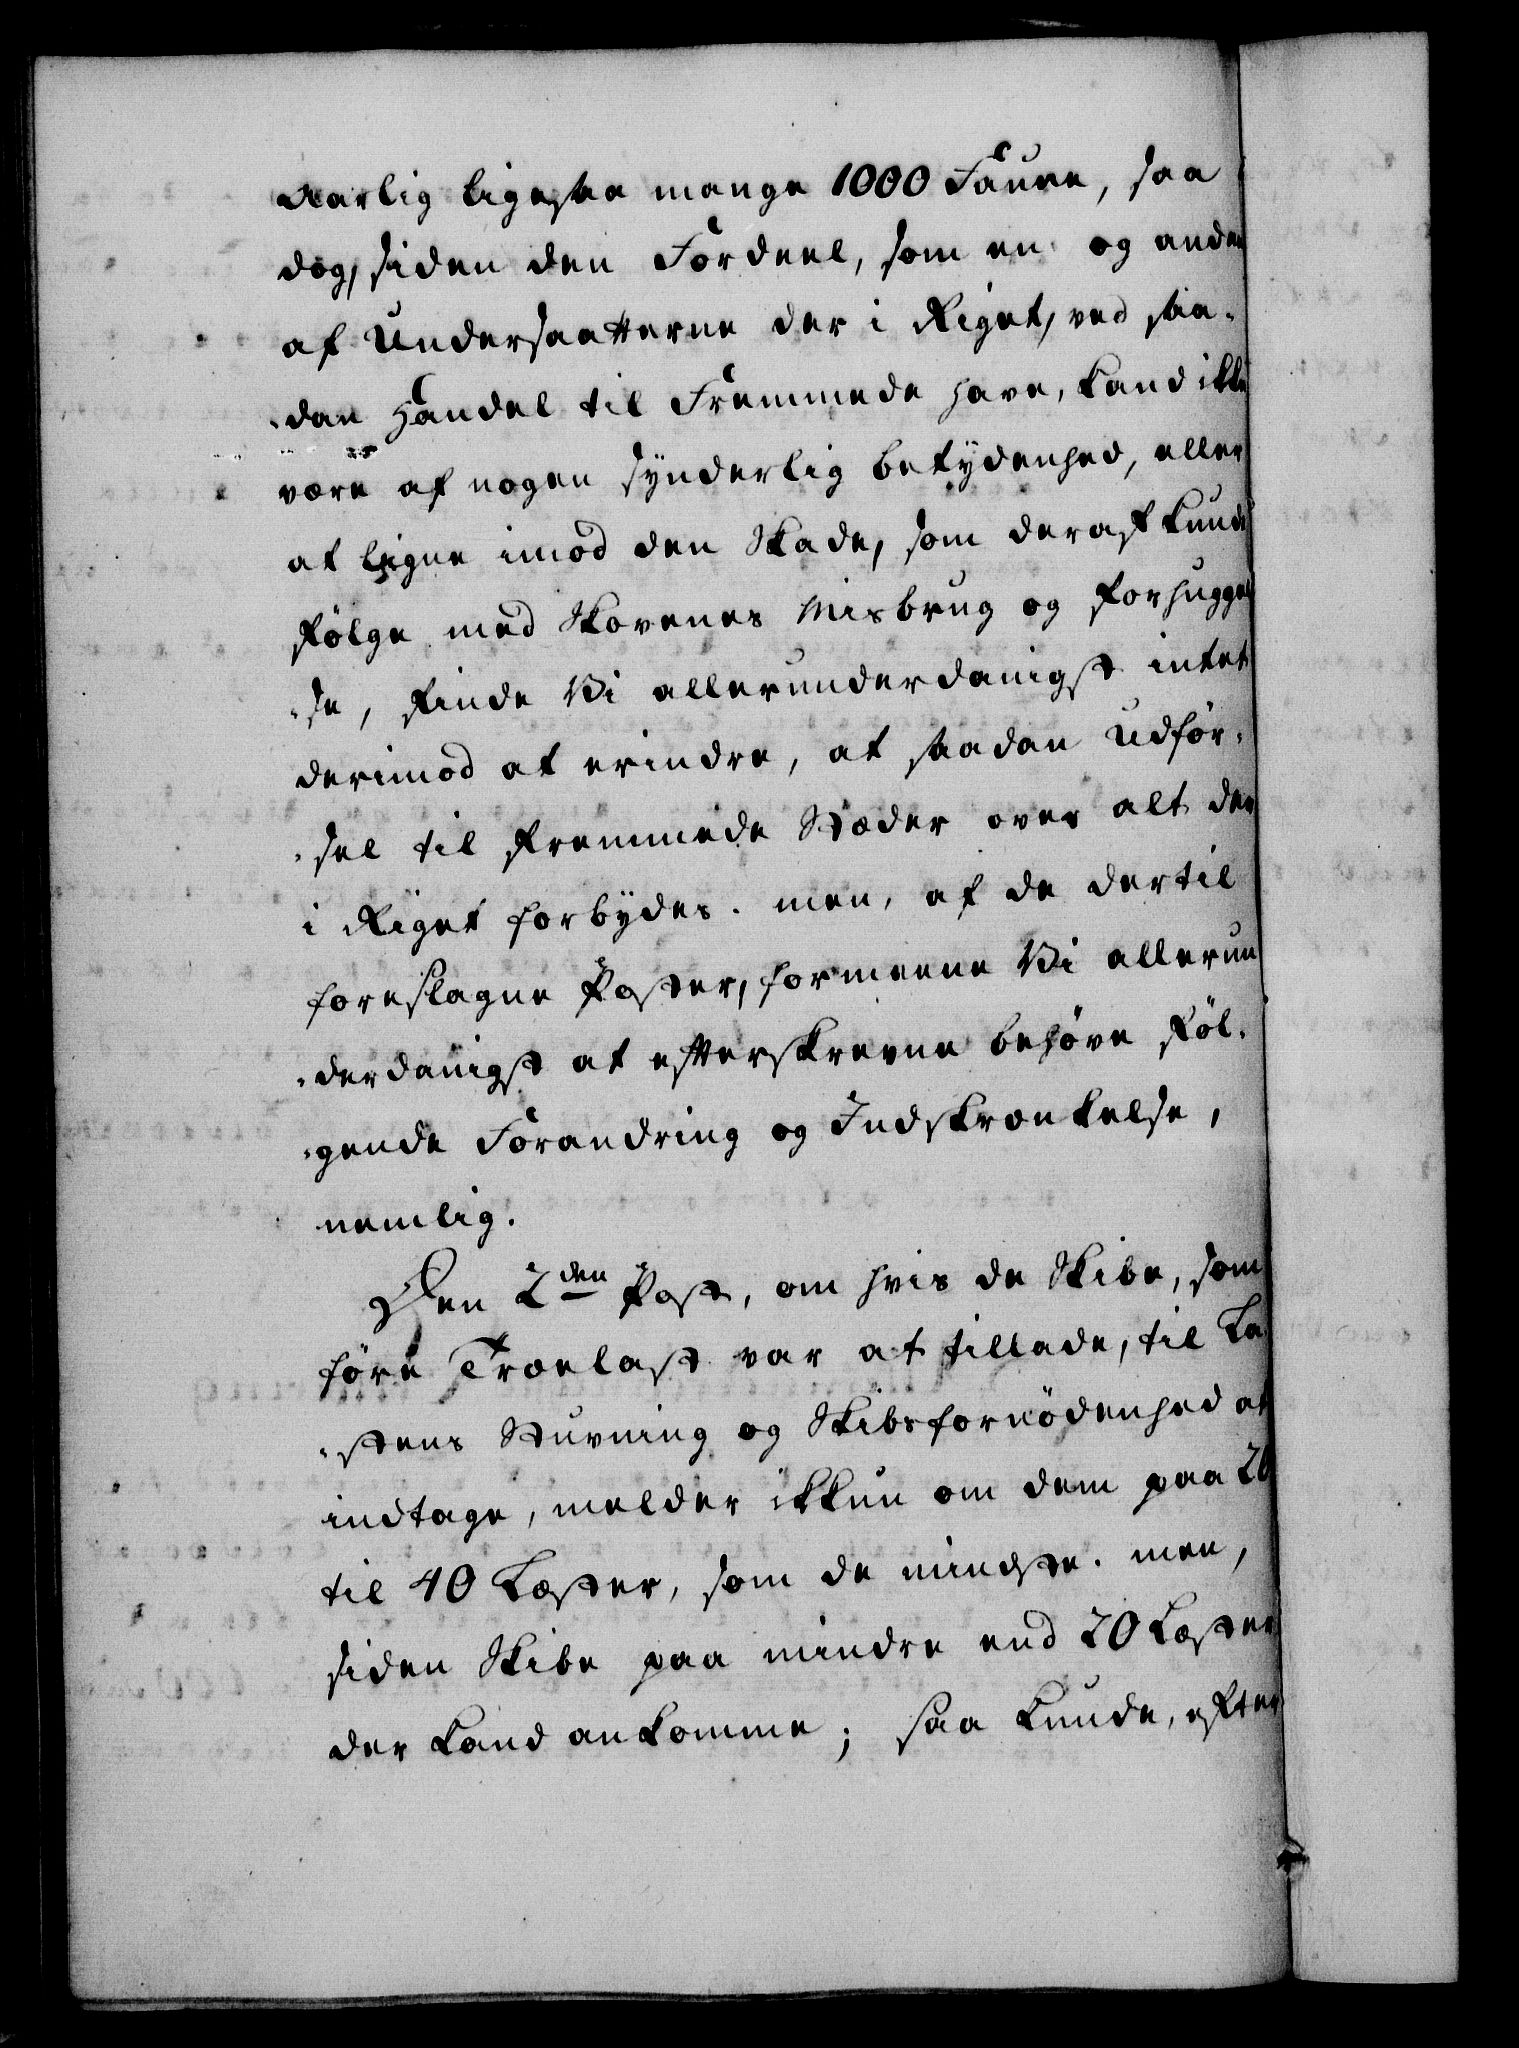 aarlig ligesaa mange 1000 Faune, saa
dog, siden den Fordeel, som en og anden
af Undersaatterne der i Riget, ved saa-
-dan Handel til Fremmede have, kand ikke
være af nogen synderlig betydenhed, eller
at ligne imod den Skade, som deraf kunde
følge med Skovenes Misbrug og forhuggel
-se, finde Vi allerunderdanigst intet
derimod at erindre, at saadan Udfør-
-sel til fremmede Stæder over alt der
i Riget forbydes. men, af de dertil
foreslagne Poster, formeene Vi allerun
-derdanigst at efterskrevne behøve føl-
-gende Forandring og Indskrænkelse,
nemlig.
Den 2den Post, om hvis de Skibe, som
føre Trælast var at tillade, til La-
-stens Stuvning og Skibsfornødenhed at
indtage, melder ikkun om dem paa 20
til 40 Læster, som de mindste. men,
siden Skibe paa mindre end 20 Læster
der kand ankomme; saa kunde, efter